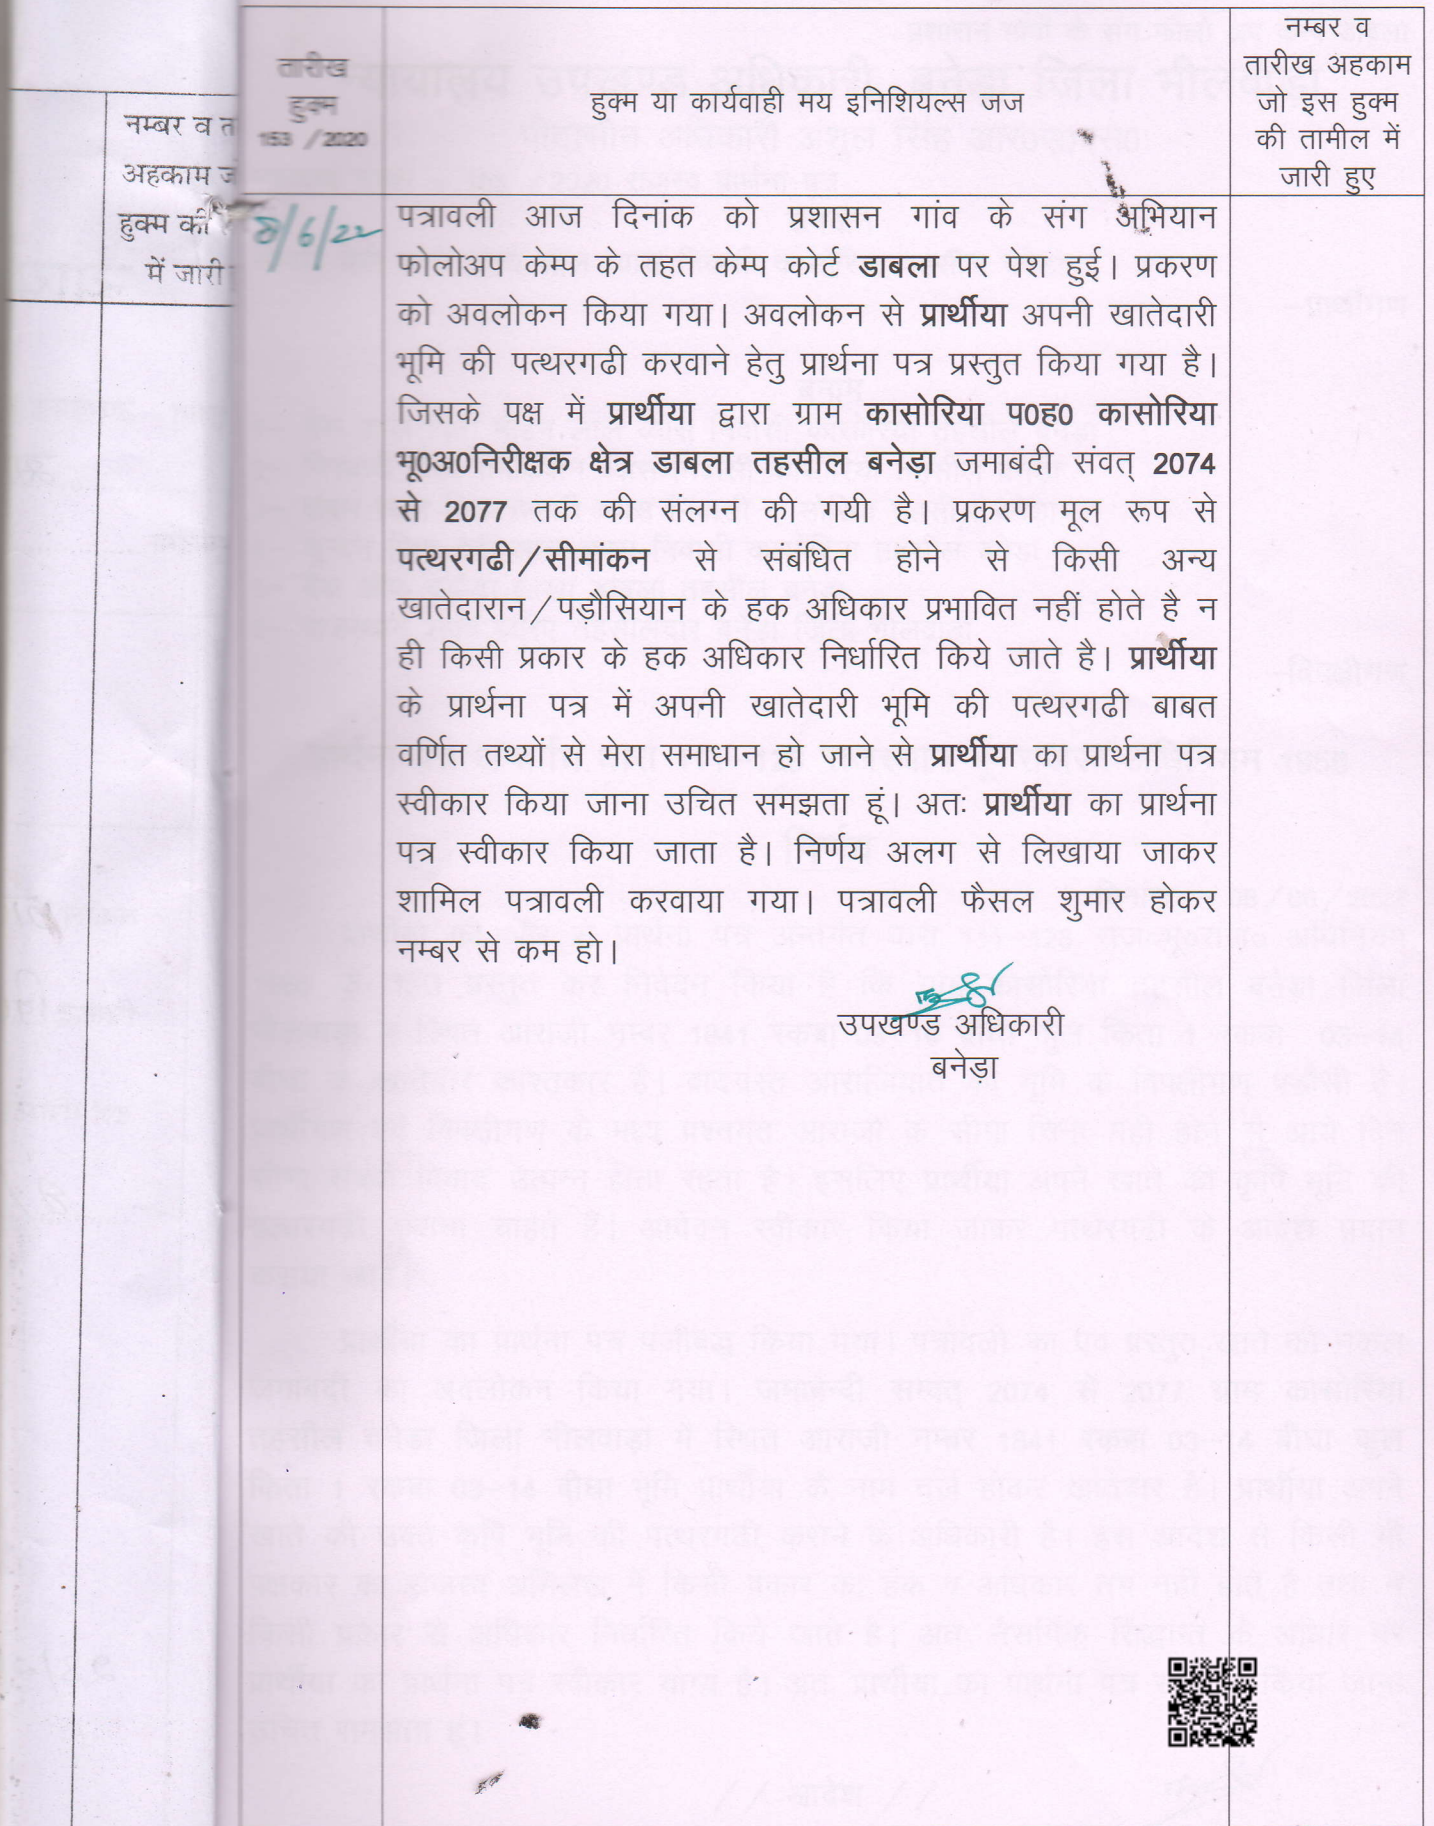 नम्बर व
अहकाम
हुक्म की
में जारी
तारीख
हुक्म
153 /2020
हुक्म या कार्यवाही मय इनिशियल्स जज
नम्बर व
तारीख अहकाम
जो इस हुक्म
की तामील में
जारी हुए
8/6/22
पत्रावली आज दिनांक को प्रशासन गांव के संग अभियान
फोलोअप केम्प के तहत केम्प कोर्ट डाबला पर पेश हुई। प्रकरण
को अवलोकन किया गया। अवलोकन से प्रार्थीया अपनी खातेदारी
भूमि की पत्थरगढी करवाने हेतु प्रार्थना पत्र प्रस्तुत किया गया है।
जिसके पक्ष में प्रार्थीया द्वारा ग्राम कासोरिया प0ह0 कासोरिया
भू0अ0निरीक्षक क्षेत्र डाबला तहसील बनेड़ा जमाबंदी संवत् 2074
से 2077 तक की संलग्न की गयी है। प्रकरण मूल रूप से
पत्थरगढी/सीमांकन से संबंधित होने से किसी अन्य
खातेदारान/पड़ौसियान के हक अधिकार प्रभावित नहीं होते है न
ही किसी प्रकार के हक अधिकार निर्धारित किये जाते है। प्रार्थीया
के प्रार्थना पत्र में अपनी खातेदारी भूमि की पत्थरगढी बाबत
वर्णित तथ्यों से मेरा समाधान हो जाने से प्रार्थीया का प्रार्थना पत्र
स्वीकार किया जाना उचित समझता हूं। अतः प्रार्थीया का प्रार्थना
पत्र स्वीकार किया जाता है। निर्णय अलग से लिखाया जाकर
शामिल पत्रावली करवाया गया। पत्रावली फैसल शुमार होकर
नम्बर से कम हो।
उपखण्ड अधिकारी
बनेड़ा